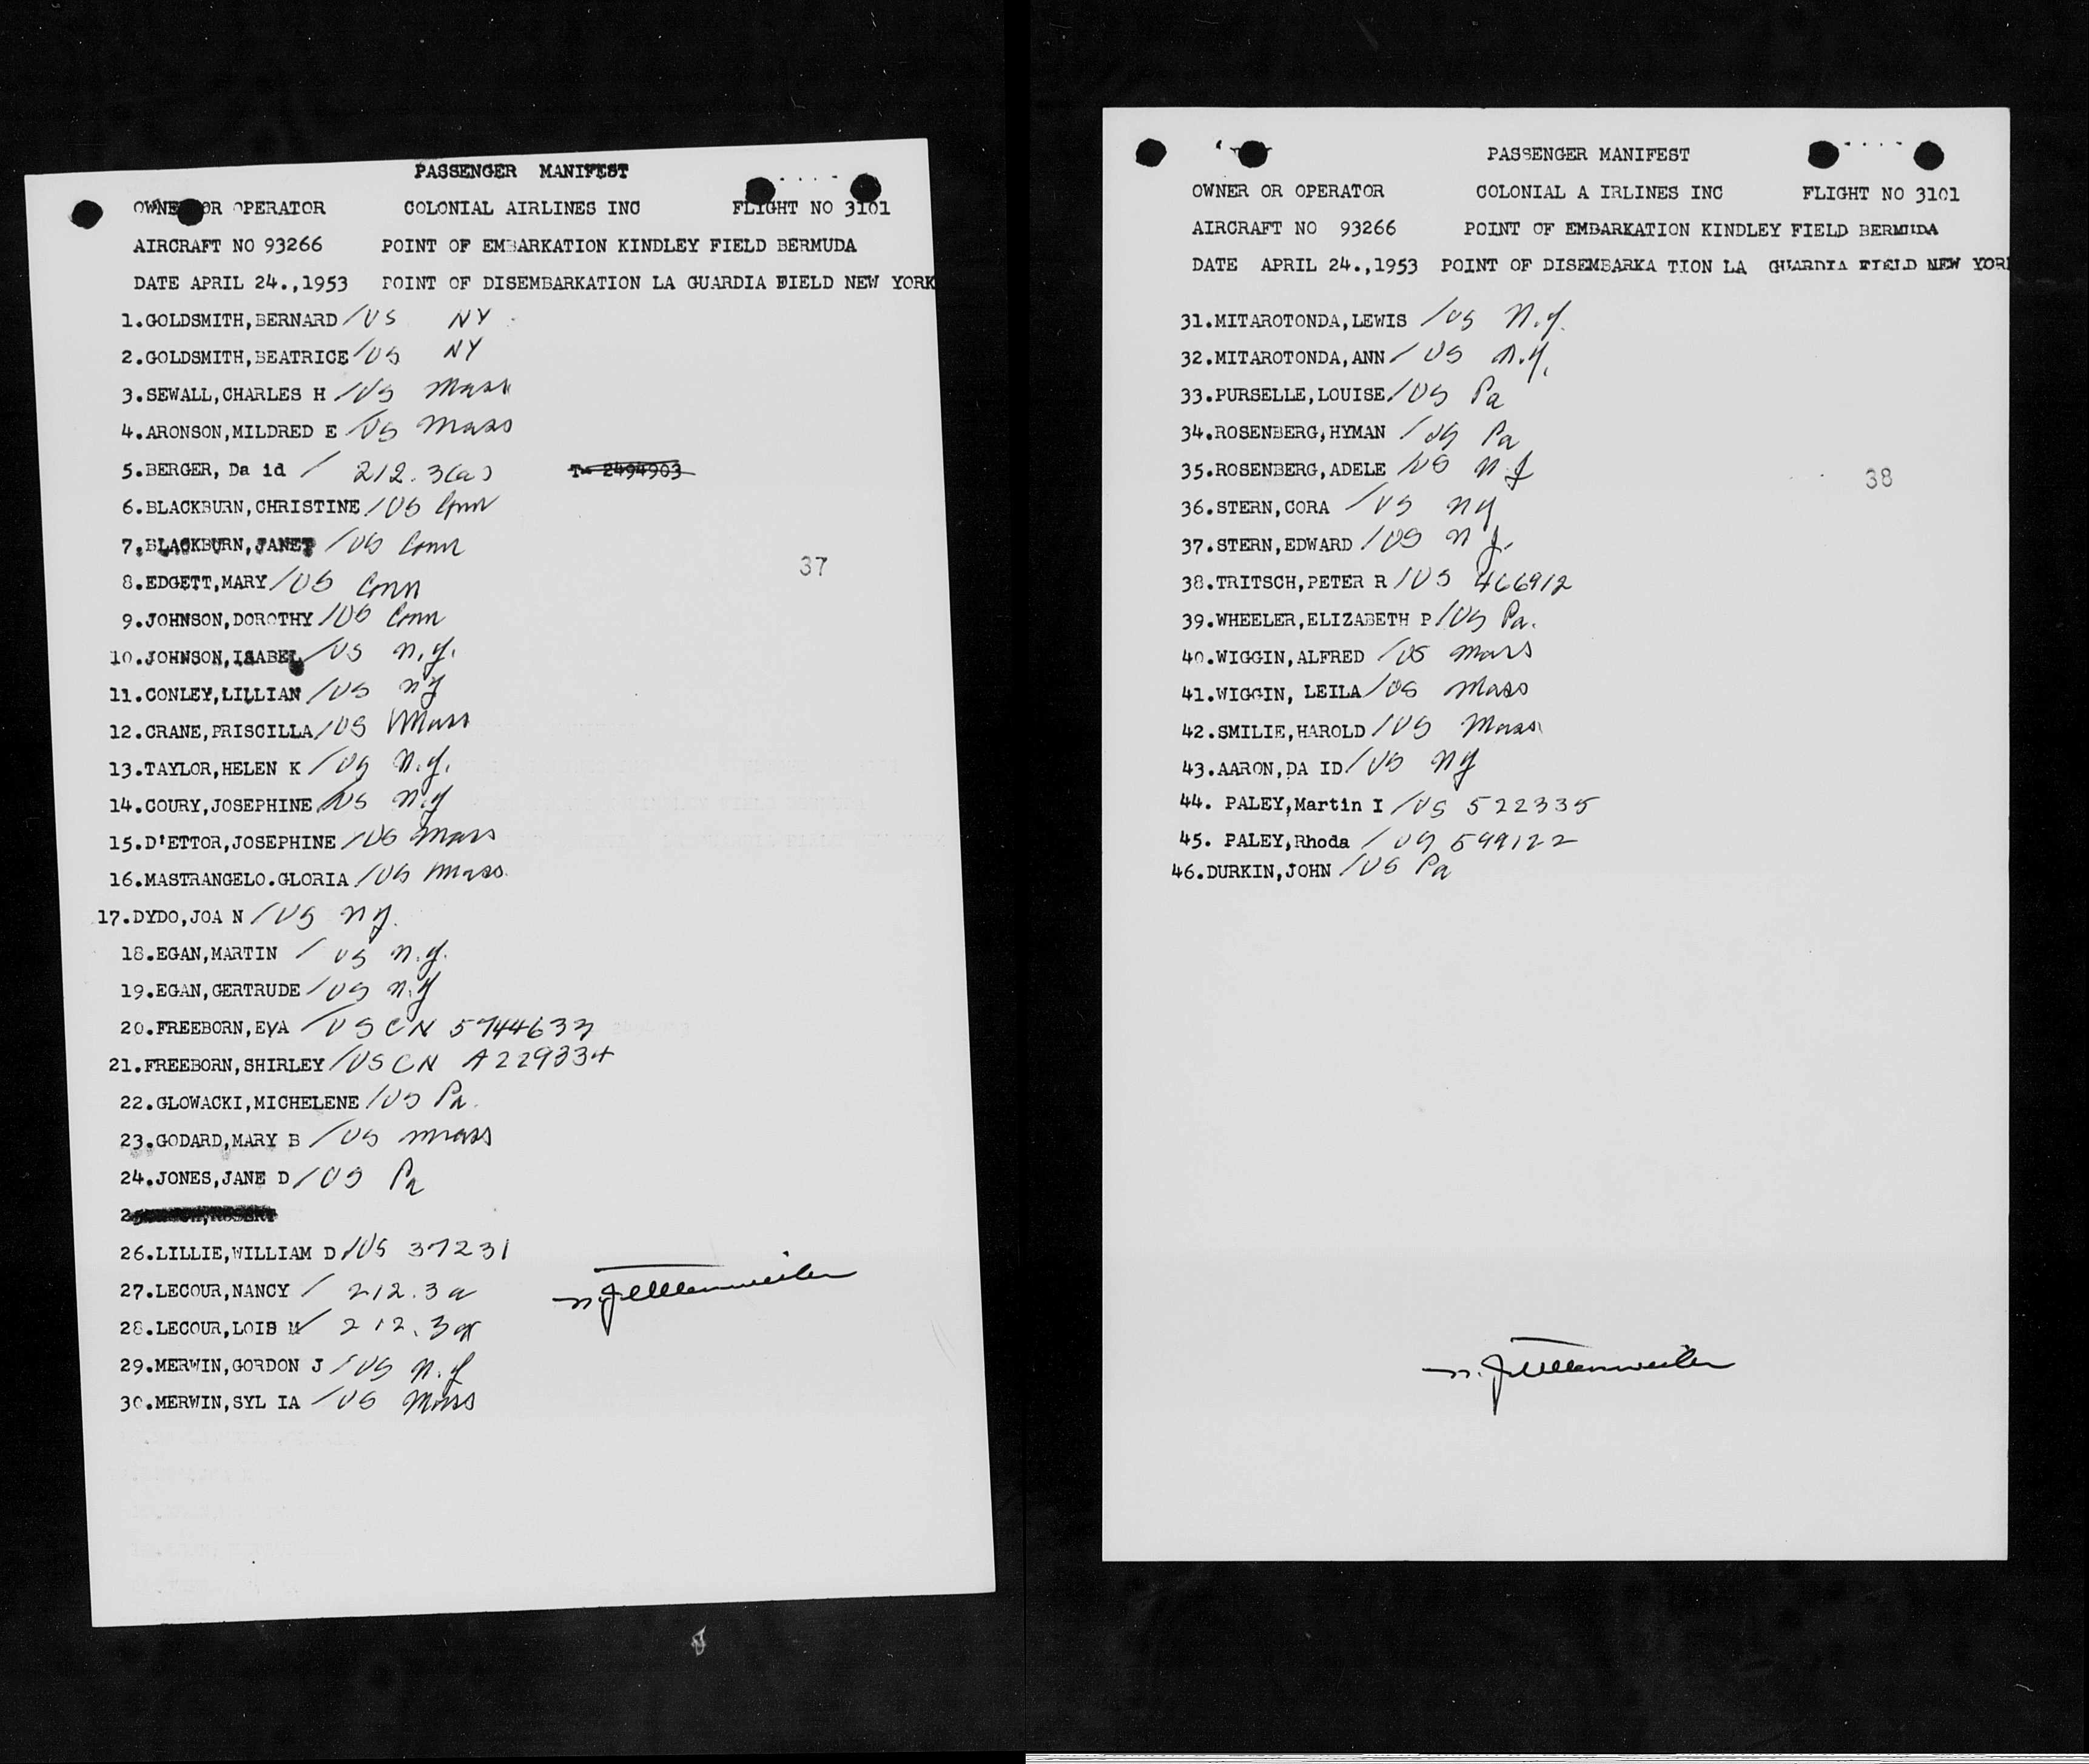 PASSENGER MANIFEST
OWNER OR OPERATOR COLONIAL AIRLINES INC FLIGHT NO 3101
AIRCRAFT NO 93266 POINT OF EMBARKATION KINDLEY FIELD BERMUDA
DATE APRIL 24.,1953 POINT OF DISEMBARKATION LA GUARDIA FIELD NEW YORK
1.GOLDSMITH,BERNARD / US NY
2.GOLDSMITH,BEATRICE / US NY
3.SEWALL,CHARLES H / US Mass
4.ARONSON,MILDRED E / US Mass
5.BERGER, Da id / 212.3(a) T- 2494903
6.BLACKBURN,CHRISTINE / US Conn
7.BLACKBURN,JANET / US Conn
37
8.EDGETT,MARY / US Conn
9.JOHNSON,DOROTHY / US Conn
10.JOHNSON,ISABEL / US N.Y.
11.CONLEY,LILLIAN / US NY
12.CRANE,PRISCILLA / US Mass
13.TAYLOR,HELEN K / US N.Y.
14.COURY,JOSEPHINE / US N.Y
15.D'ETTOR,JOSEPHINE / US Mass
16.MASTRANGELO.GLORIA / US Mass.
17.DYDO,JOA N / US NY.
18.EGAN,MARTIN / US N.Y.
19.EGAN,GERTRUDE / US N.Y
20.FREEBORN,EVA / US CN 5744633
21.FREEBORN,SHIRLEY / US CN A229334
22.GLOWACKI,MICHELENE / US Pa.
23.GODARD,MARY B / US Mass
24.JONES,JANE D / US Pa
26.LILLIE,WILLIAM D / US 37231
27.LECOUR,NANCY / 212.3 a
28.LECOUR,LOIS M / 212.3 a
29.MERWIN,GORDON J / US N.Y
30.MERWIN,SYL IA / US Mass
PASSENGER MANIFEST
OWNER OR OPERATOR COLONIAL A IRLINES INC FLIGHT NO 3101
AIRCRAFT NO 93266 POINT OF EMBARKATION KINDLEY FIELD BERMUDA
DATE APRIL 24.,1953 POINT OF DISEMBARKA TION LA GUARDIA FIELD NEW YORK
31.MITAROTONDA,LEWIS / US N.Y.
32.MITAROTONDA,ANN / US N.Y.
33.PURSELLE,LOUISE / US Pa
34.ROSENBERG,HYMAN / US Pa
35.ROSENBERG,ADELE / US N.J
38
36.STERN,CORA / US NY
37.STERN,EDWARD / US N J.
38.TRITSCH,PETER R / US 466912
39.WHEELER,ELIZABETH P / US Pa.
40.WIGGIN,ALFRED / US Mass
41.WIGGIN, LEILA / US Mass
42.SMILIE,HAROLD / US Mass
43.AARON,DA ID / US NY
44. PALEY,Martin I / US 522335
45. PALEY,Rhoda / US 599122
46.DURKIN,JOHN / US Pa